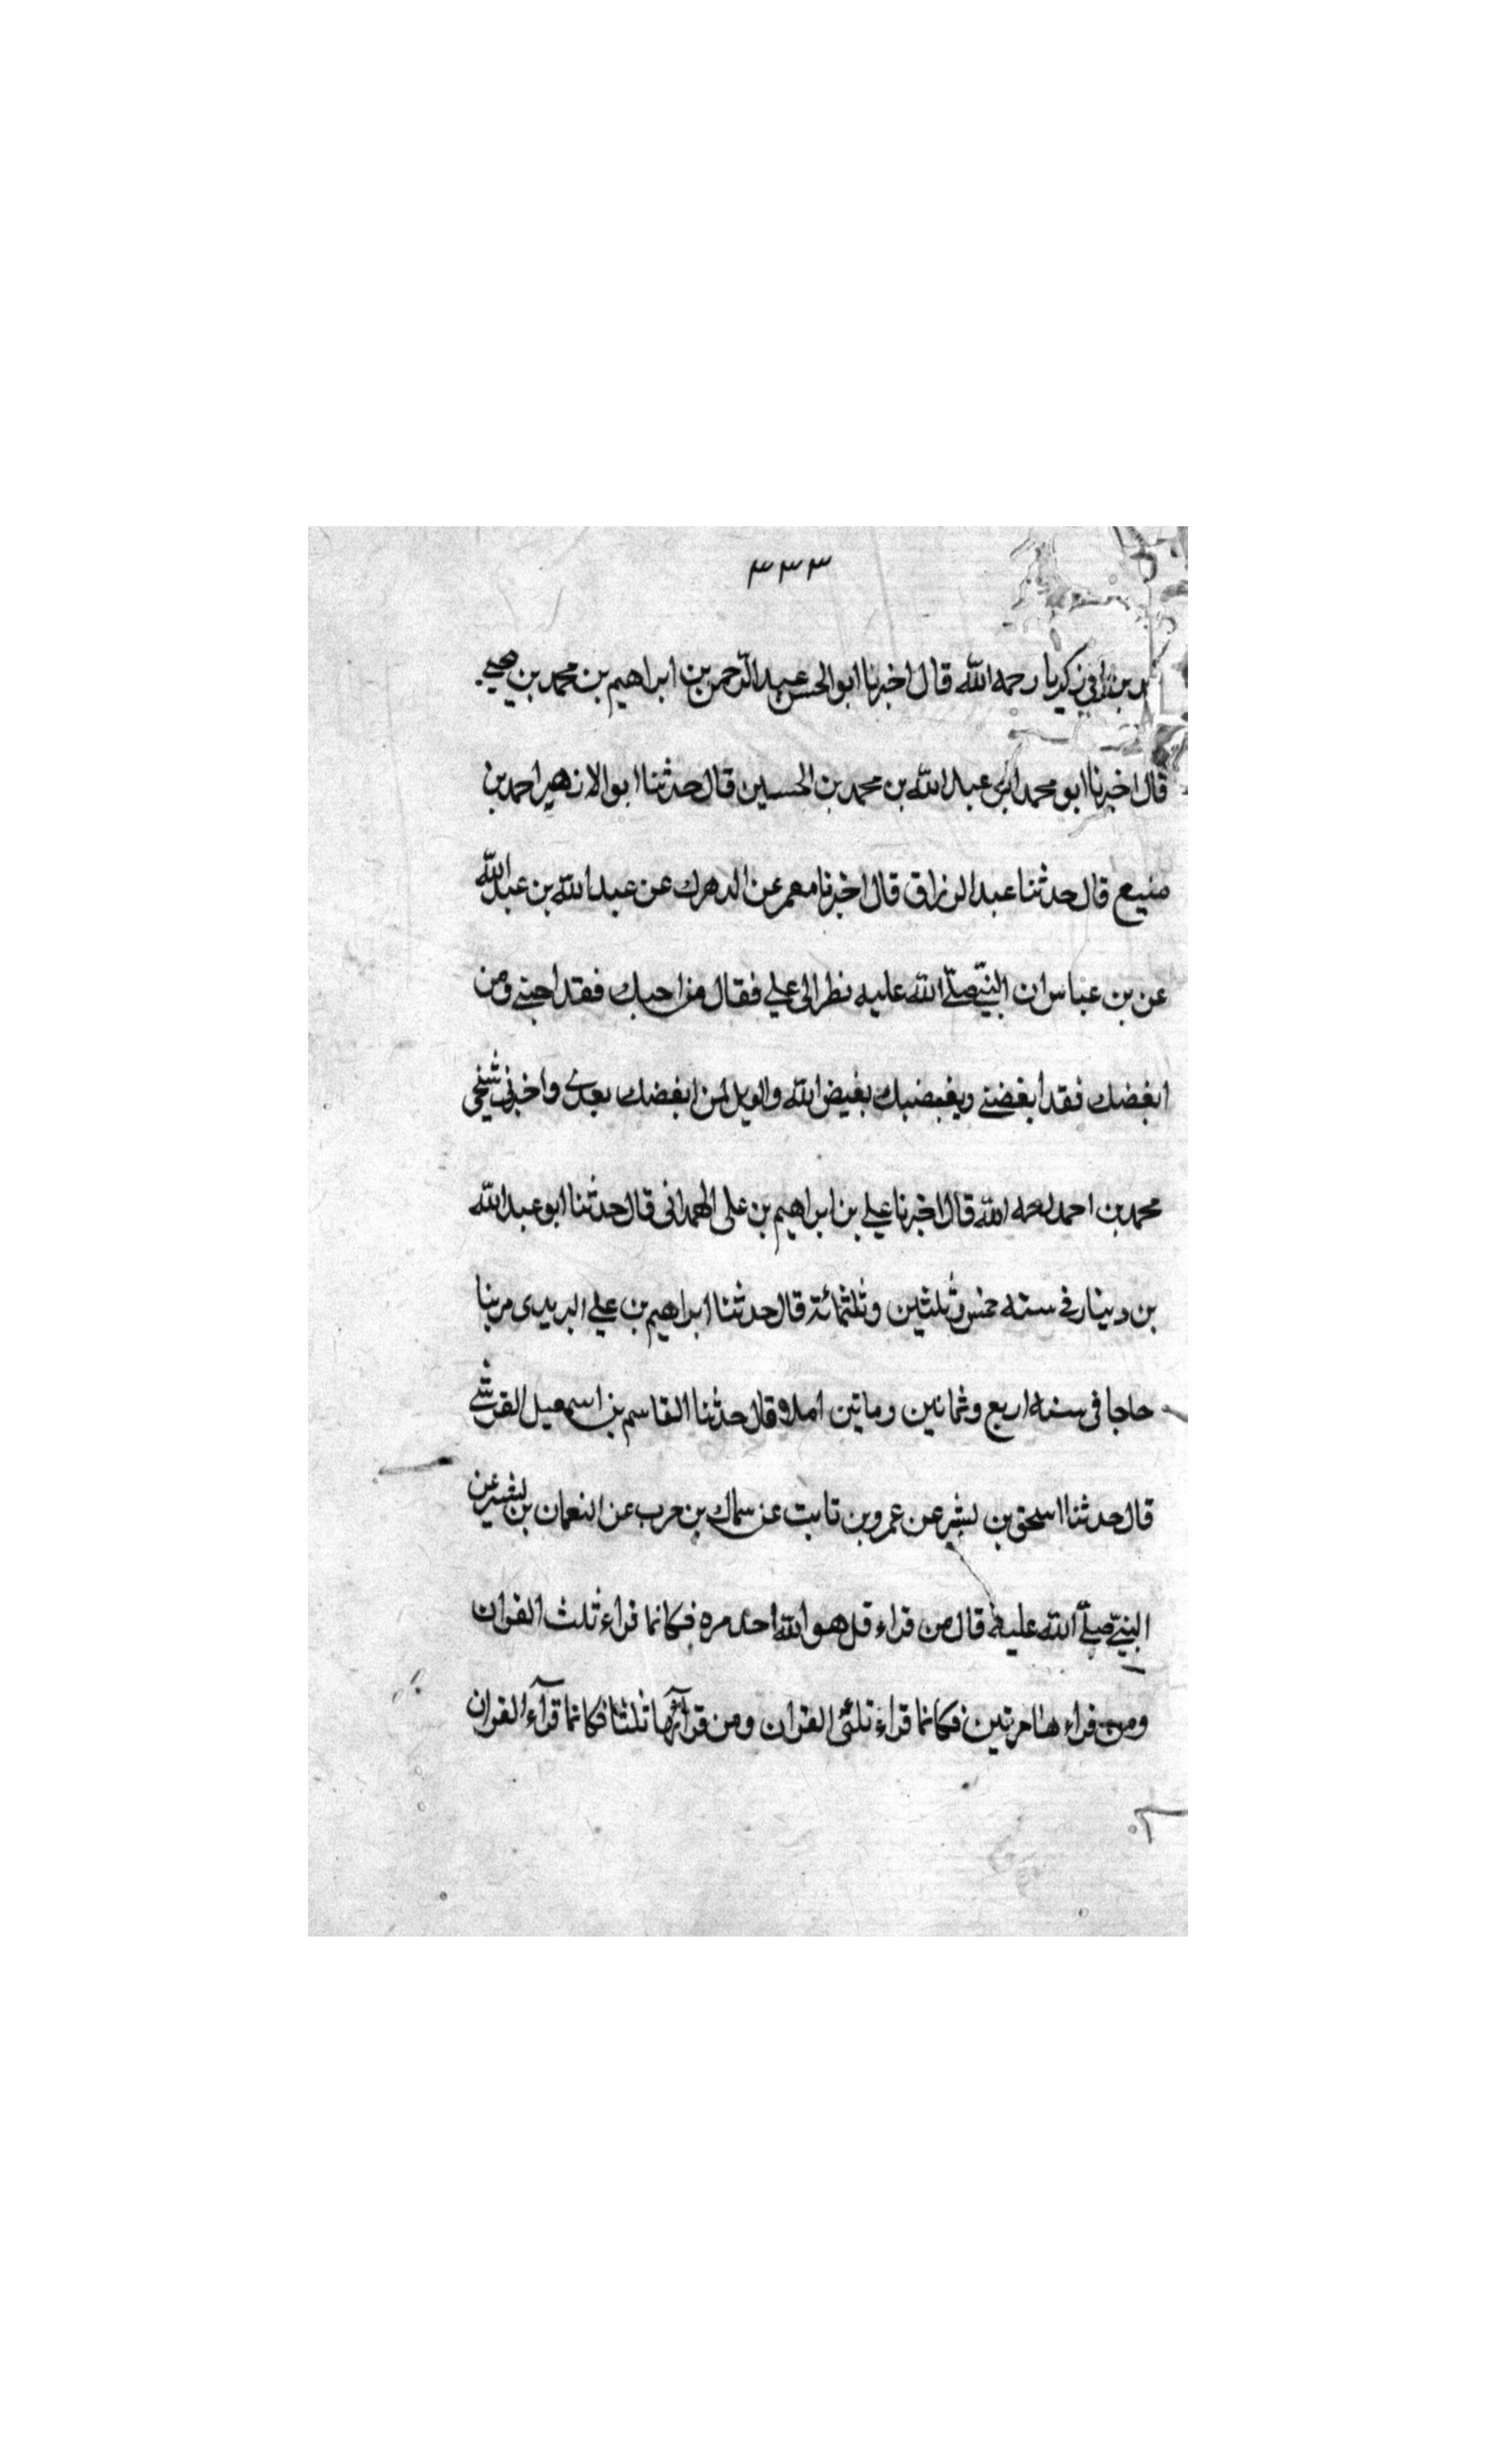 ٣٣٣
بن ابي زكريا رحمه الله قال اخبرنا ابو الحسن عبد الرحمن بن ابراهيم بن محمد بن يحيى
قال اخبرنا ابو محمد ابى عبد الله بن محمد بن الحسين قال حدثنا ابو الازهر احمد بن
منيع قال حدثنا عبد الرزاق قال اخبرنا معمر عن الدهرك عن عبد الله بن عبد الله
عن بن عباس ان النبي صلى الله عليه نظر الى علي فقال من احبك فقد احبنى ومن
ابغضك فقد ابغضنى وبغيضك بغيض الله والويل لمن ابغضك بعدى واخبرنى شيخى
محمد بن احمد رحمه الله قال اخبرنا علي بن ابراهيم بن على الهمدانى قال حدثنا ابو عبد الله
بن دينار فى سنه خمس وثلثين وثلثمائة قال حدثنا ابراهيم بن علي البريدى مر بنا
حاجا فى سنه اربع وثمانين وماتين املاء قال حدثنا القاسم بن اسمعيل القرشى
قال حدثنا اسحق بن بشير عن عمرو بن ثابت عن سماك بن حرب عن النعمان بن بشير عن
النبي صلى الله عليه قال من قراء قل هو الله احد مره فكانما قراء ثلث القران
ومن قراء ها مرتين فكانما قراء ثلثى القران ومن قرأها ثلثا فكانما قرآء القران